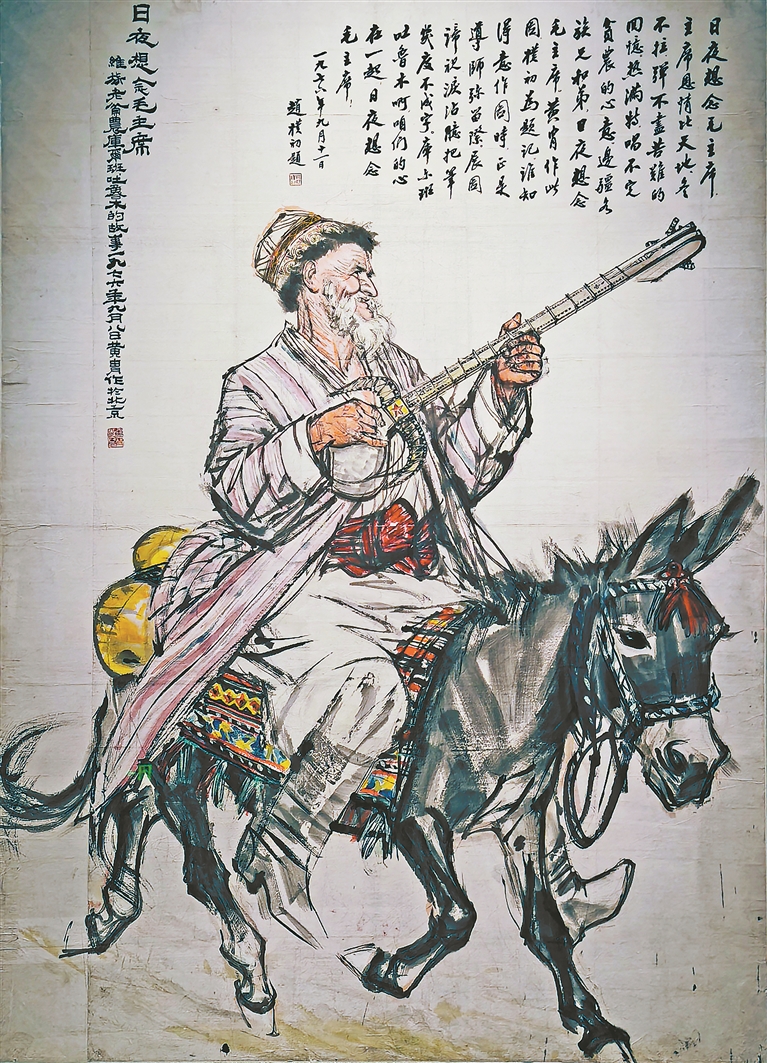 日夜想念毛主席
主席恩情比天地冬
不拉彈不盡苦難的
回憶热唱不完
貧農的心意邊疆各
族兄和弟日夜想念
毛主席黄胄作此
图樸初為題記谁知
得意作图時正是
導師弥留際展图
諦視淚沾臆把筆
幾度不成字庫尔班
吐鲁木啊咱们的心
在一起日夜想念
毛主席！
一九七六年九月十一日
趙樸初題
日夜想念毛主席
維族老貧農庫爾班吐魯木的故事一九七六年九月八日黄胄作於北京